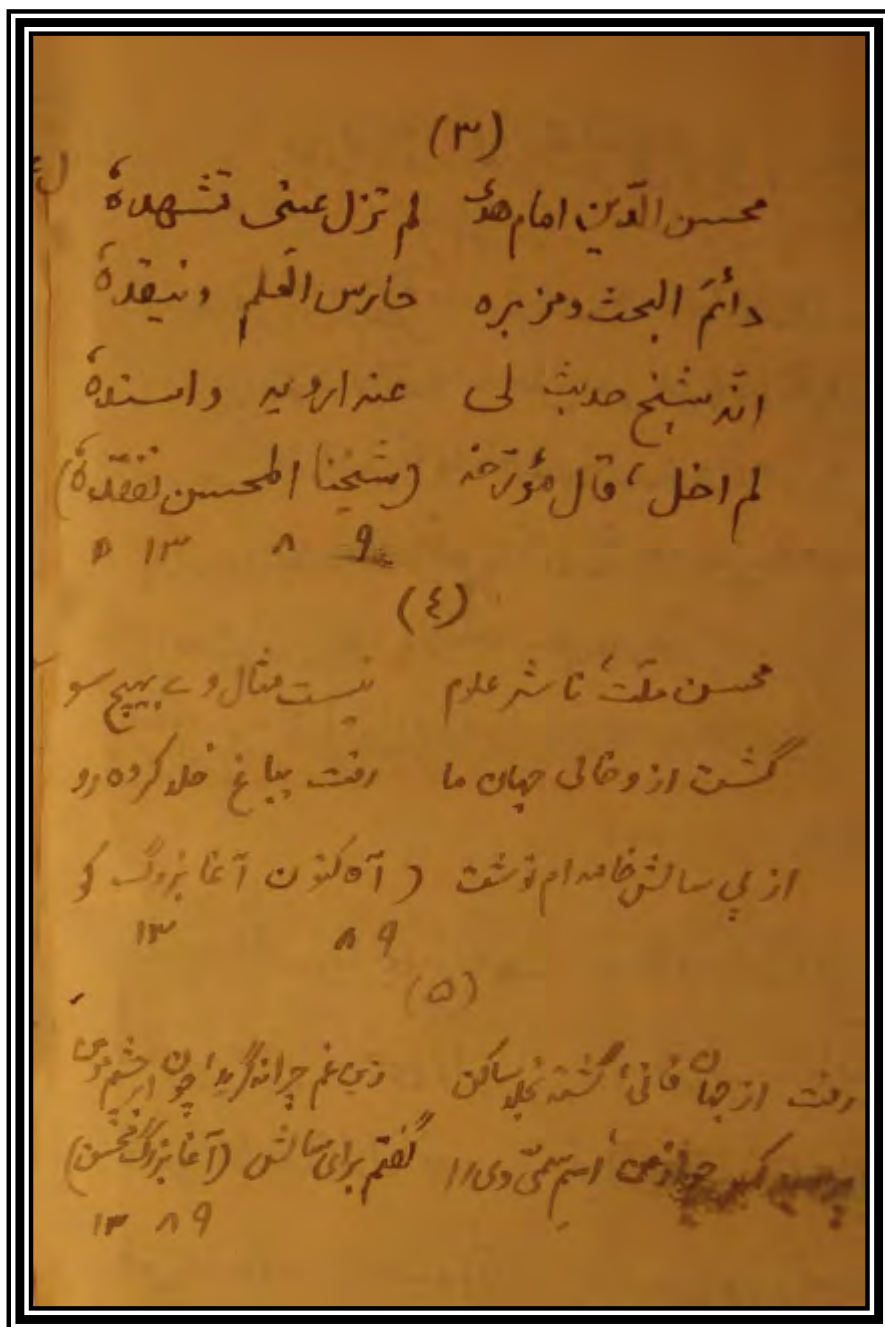 (٣)
محسن الدّين امام هدىً لم تزل عيني تشهدهُ
دائمَ البحث ومزبره حارس العلم وينقدهُ
انّه شيخ حديث لي عنه ارويه واسندهُ
لم اخل، قال مؤرّخه (شيخنا المحسن نفقدهُ)
١٣ ٨ ٩ ه
(٤)
محسن ملّت، ناشر علوم نیست مثال وے بهیچ سو
گشت از و خالی جهان ما رفت بباغ خلد کرده رو
از پی سالش خامه ام نوشت (آه کنون آغا بزرگ کو
١٣ ٨ ٩
(۵)
رفت از جهان فانی، گشته بخلد ساکن زین غم چرا نه گرید، چون ابر چشم
از من، اسم سمیّ وی را گفتم برای سالش (آغا بزرگ محسن)
١٣ ٨ ٩